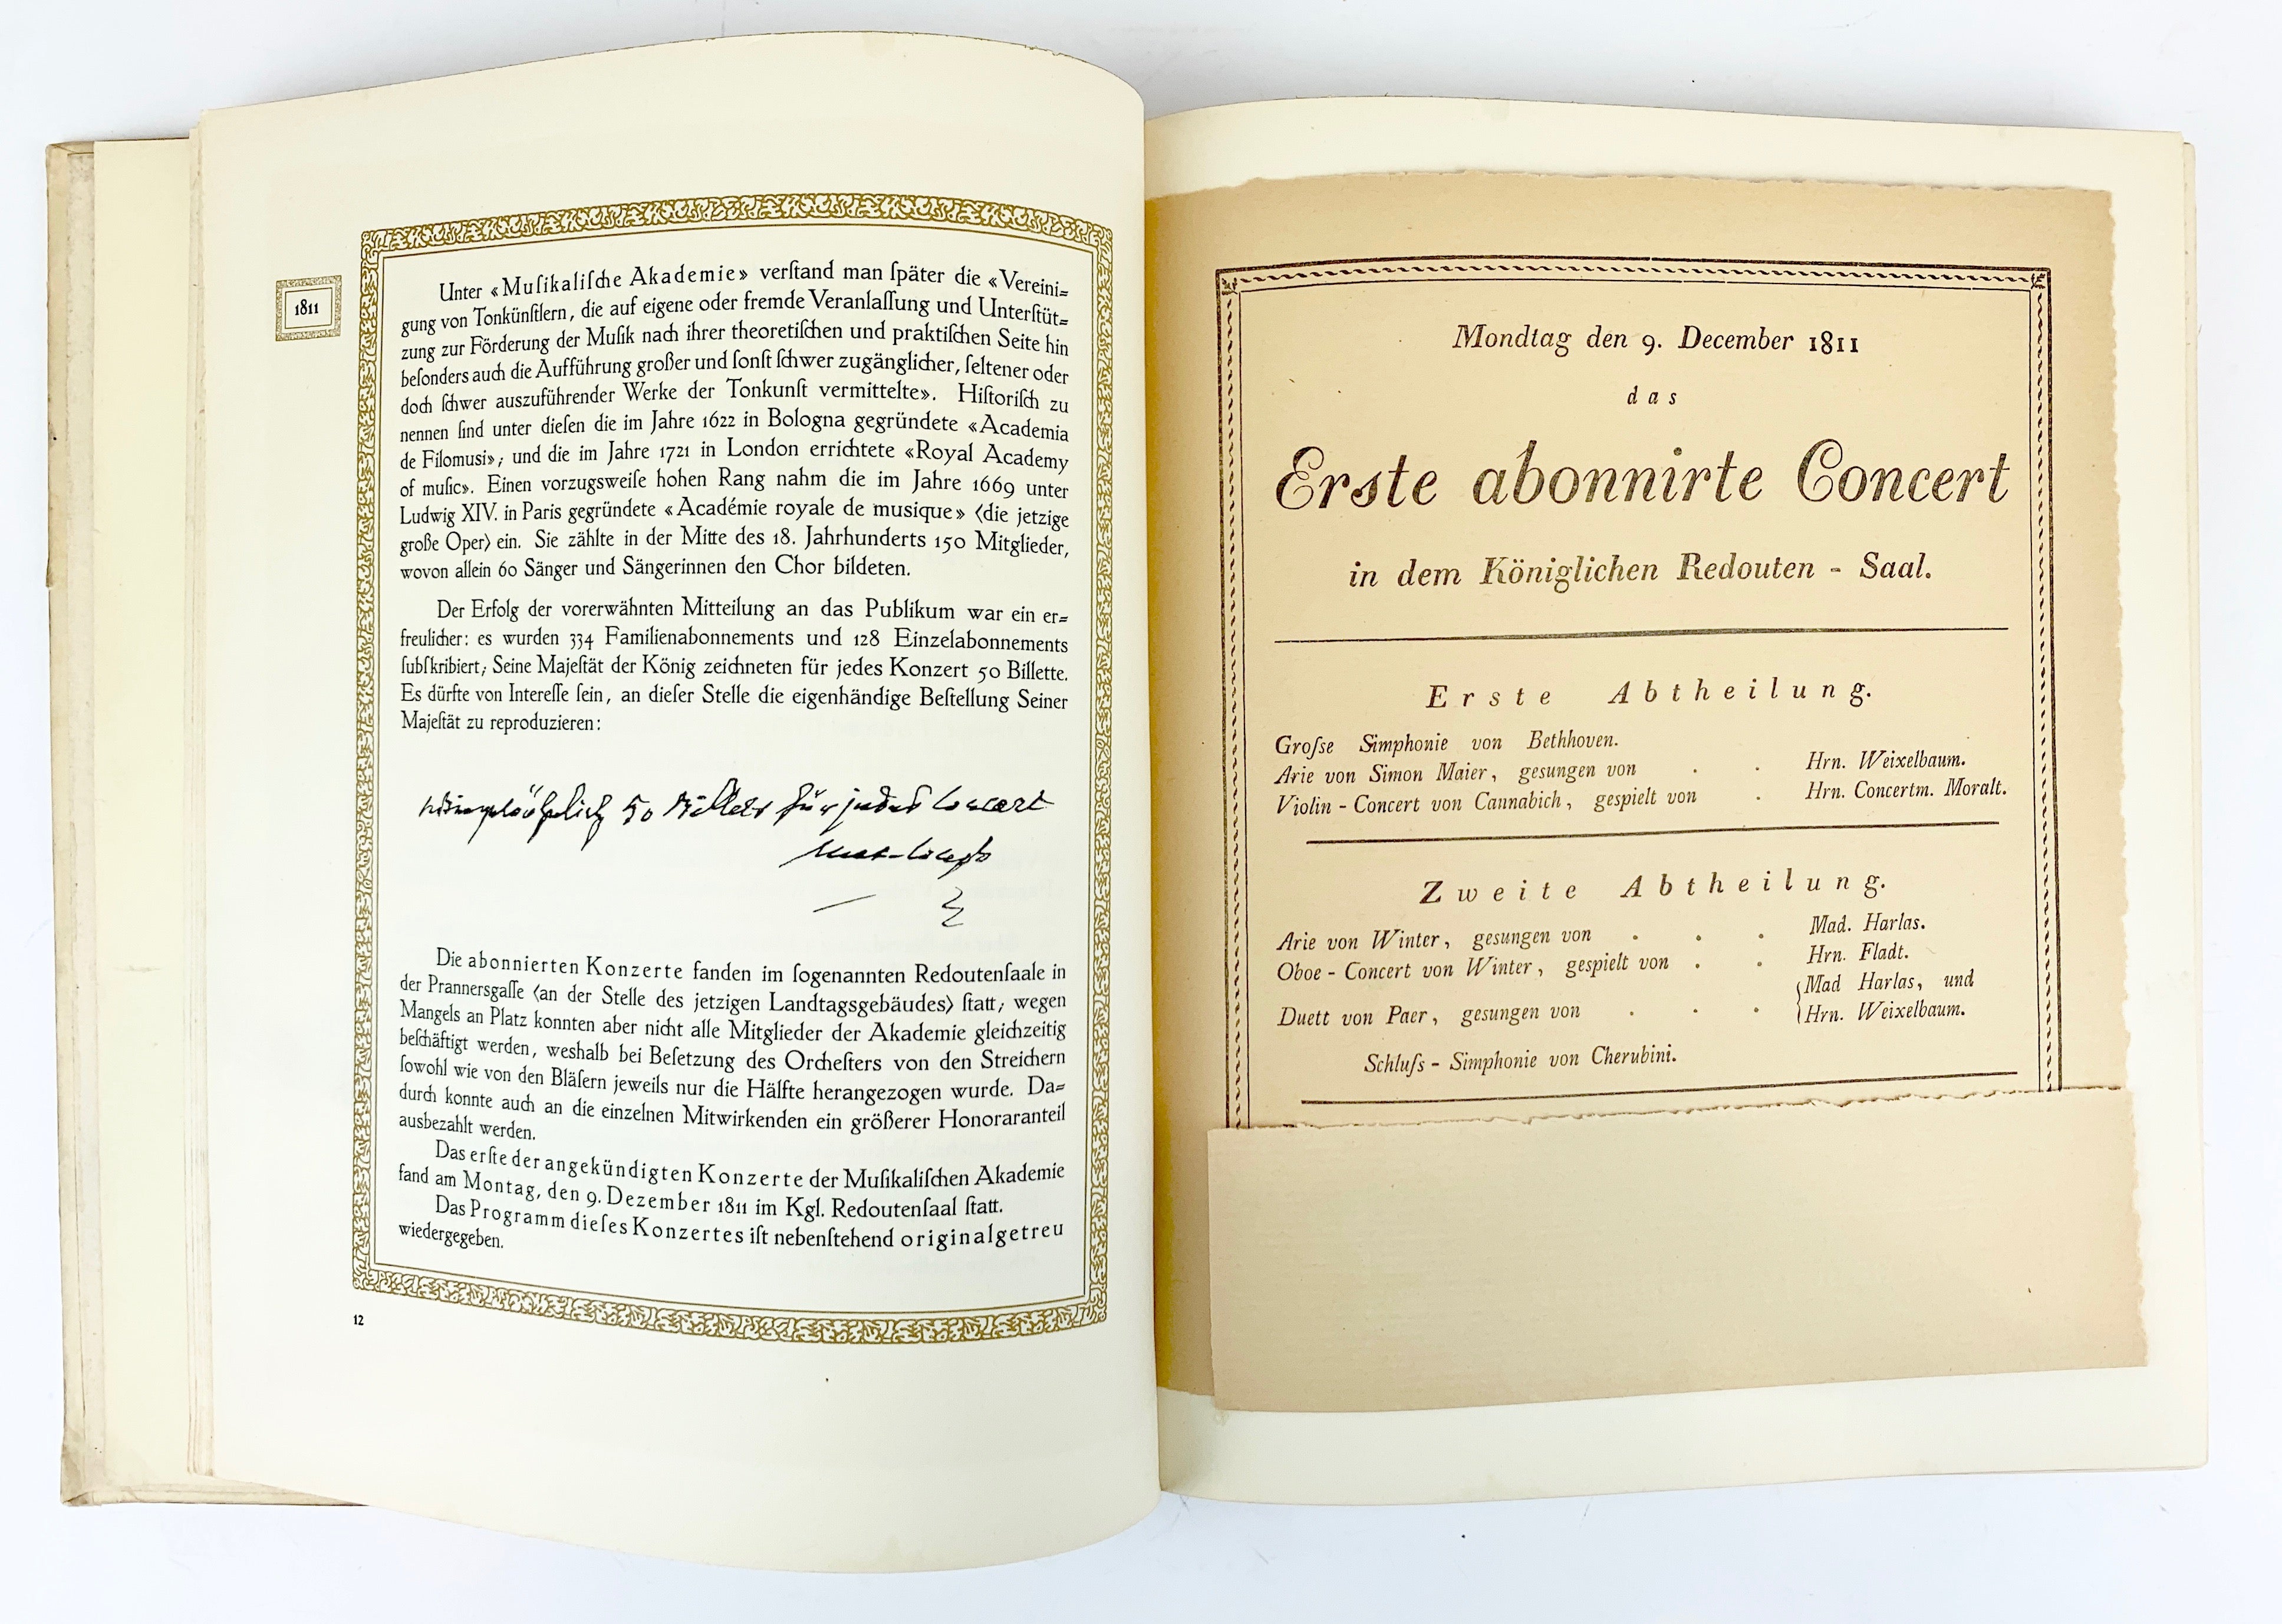 1811
Unter «Muſikaliſche Akademie» verſtand man ſpäter die «Vereini=
gung von Tonkünſtlern, die auf eigene oder fremde Veranlaſſung und Unterſtüt=
zung zur Förderung der Muſik nach ihrer theoretiſchen und praktiſchen Seite hin
beſonders auch die Aufführung großer und ſonſt ſchwer zugänglicher, ſeltener oder
doch ſchwer auszuführender Werke der Tonkunſt vermittelte». Hiſtoriſch zu
nennen ſind unter dieſen die im Jahre 1622 in Bologna gegründete «Academia
de Filomusi»; und die im Jahre 1721 in London errichtete «Royal Academy
of muſic». Einen vorzugsweiſe hohen Rang nahm die im Jahre 1669 unter
Ludwig XIV. in Paris gegründete «Académie royale de musique» ⟨die jetzige
große Oper⟩ ein. Sie zählte in der Mitte des 18. Jahrhunderts 150 Mitglieder,
wovon allein 60 Sänger und Sängerinnen den Chor bildeten.
Der Erfolg der vorerwähnten Mitteilung an das Publikum war ein er=
freulicher: es wurden 334 Familienabonnements und 128 Einzelabonnements
ſubſkribiert; Seine Majeſtät der König zeichneten für jedes Konzert 50 Billette.
Es dürfte von Intereſſe ſein, an dieſer Stelle die eigenhändige Beſtellung Seiner
Majeſtät zu reproduzieren:
50 Billets für jedes Concert
Max-Joseph
Die abonnierten Konzerte fanden im ſogenannten Redoutenſaale in
der Prannersgaſſe ⟨an der Stelle des jetzigen Landtagsgebäudes⟩ ſtatt; wegen
Mangels an Platz konnten aber nicht alle Mitglieder der Akademie gleichzeitig
beſchäftigt werden, weshalb bei Beſetzung des Orcheſters von den Streichern
ſowohl wie von den Bläſern jeweils nur die Hälfte herangezogen wurde. Da=
durch konnte auch an die einzelnen Mitwirkenden ein größerer Honoraranteil
ausbezahlt werden.
Das erſte der angekündigten Konzerte der Muſikaliſchen Akademie
fand am Montag, den 9. Dezember 1811 im Kgl. Redoutenſaal ſtatt.
Das Programm dieſes Konzertes iſt nebenſtehend originalgetreu
wiedergegeben.
12
Mondtag den 9. December 1811
das
Erste abonnirte Concert
in dem Königlichen Redouten - Saal.
Erste Abtheilung.
Groſse Simphonie von Bethhoven.
Arie von Simon Maier, gesungen von . . Hrn. Weixelbaum.
Violin - Concert von Cannabich, gespielt von . Hrn. Concertm. Moralt.
Zweite Abtheilung.
Arie von Winter, gesungen von . . . Mad. Harlas.
Oboe - Concert von Winter, gespielt von . . Hrn. Fladt.
Duett von Paer, gesungen von . . . {Mad Harlas, und
Hrn. Weixelbaum.
Schluſs - Simphonie von Cherubini.